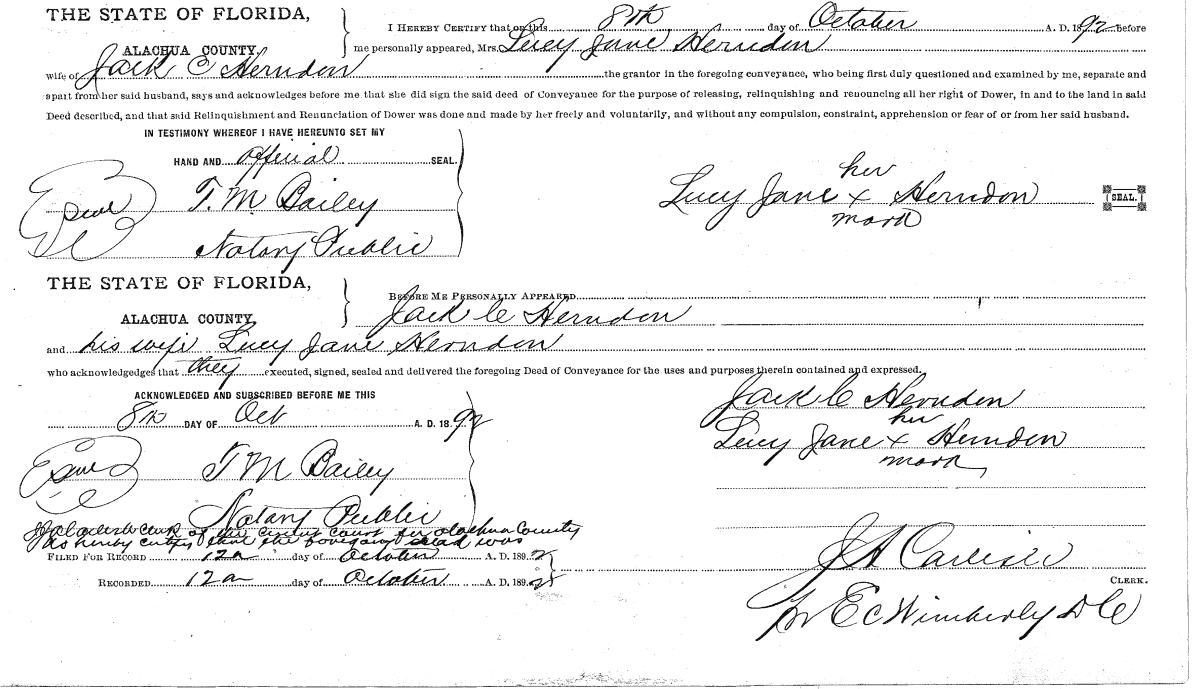 THE STATE OF FLORIDA,
ALACHUA COUNTY.
I HEREBY CERTIFY that on this 8th day of October A. D. 1892 before
me personally appeared, Mrs. Lucy Jane Herndon
wife of Jack C Herndon the grantor in the foregoing conveyance, who being first duly questioned and examined by me, separate and
apart from her said husband, says and acknowledges before me that she did sign the said deed of Conveyance for the purpose of releasing, relinquishing and renouncing all her right of Dower, in and to the land in said
Deed described, and that said Relinquishment and Renunciation of Dower was done and made by her freely and voluntarily, and without any compulsion, constraint, apprehension or fear of or from her said husband.
IN TESTIMONY WHEREOF I HAVE HEREUNTO SET MY
HAND AND official SEAL.
Seal T. M Bailey
Notary Public
her
Lucy Jane x Herndon SEAL.
mark
THE STATE OF FLORIDA,
ALACHUA COUNTY,
BEFORE ME PERSONALLY APPEARED
Jack C Herndon
and his wife Lucy Jane Herndon
who acknowledgedges that they executed, signed, sealed and delivered the foregoing Deed of Conveyance for the uses and purposes therein contained and expressed.
ACKNOWLEDGED AND SUBSCRIBED BEFORE ME THIS
8th DAY OF Oct A. D. 1892
Seal T M Bailey
Notary Public
Jack C Herndon
her
Lucy Jane x Herndon
mark
J A Carlisle Clerk of the circuit court for Alachua County
do hereby certify that the foregoing deed was
FILED FOR RECORD 12th day of October A. D. 1892
RECORDED 12th day of October A. D. 1892
J A Carlisle
CLERK.
Pr E C Wimberly D C